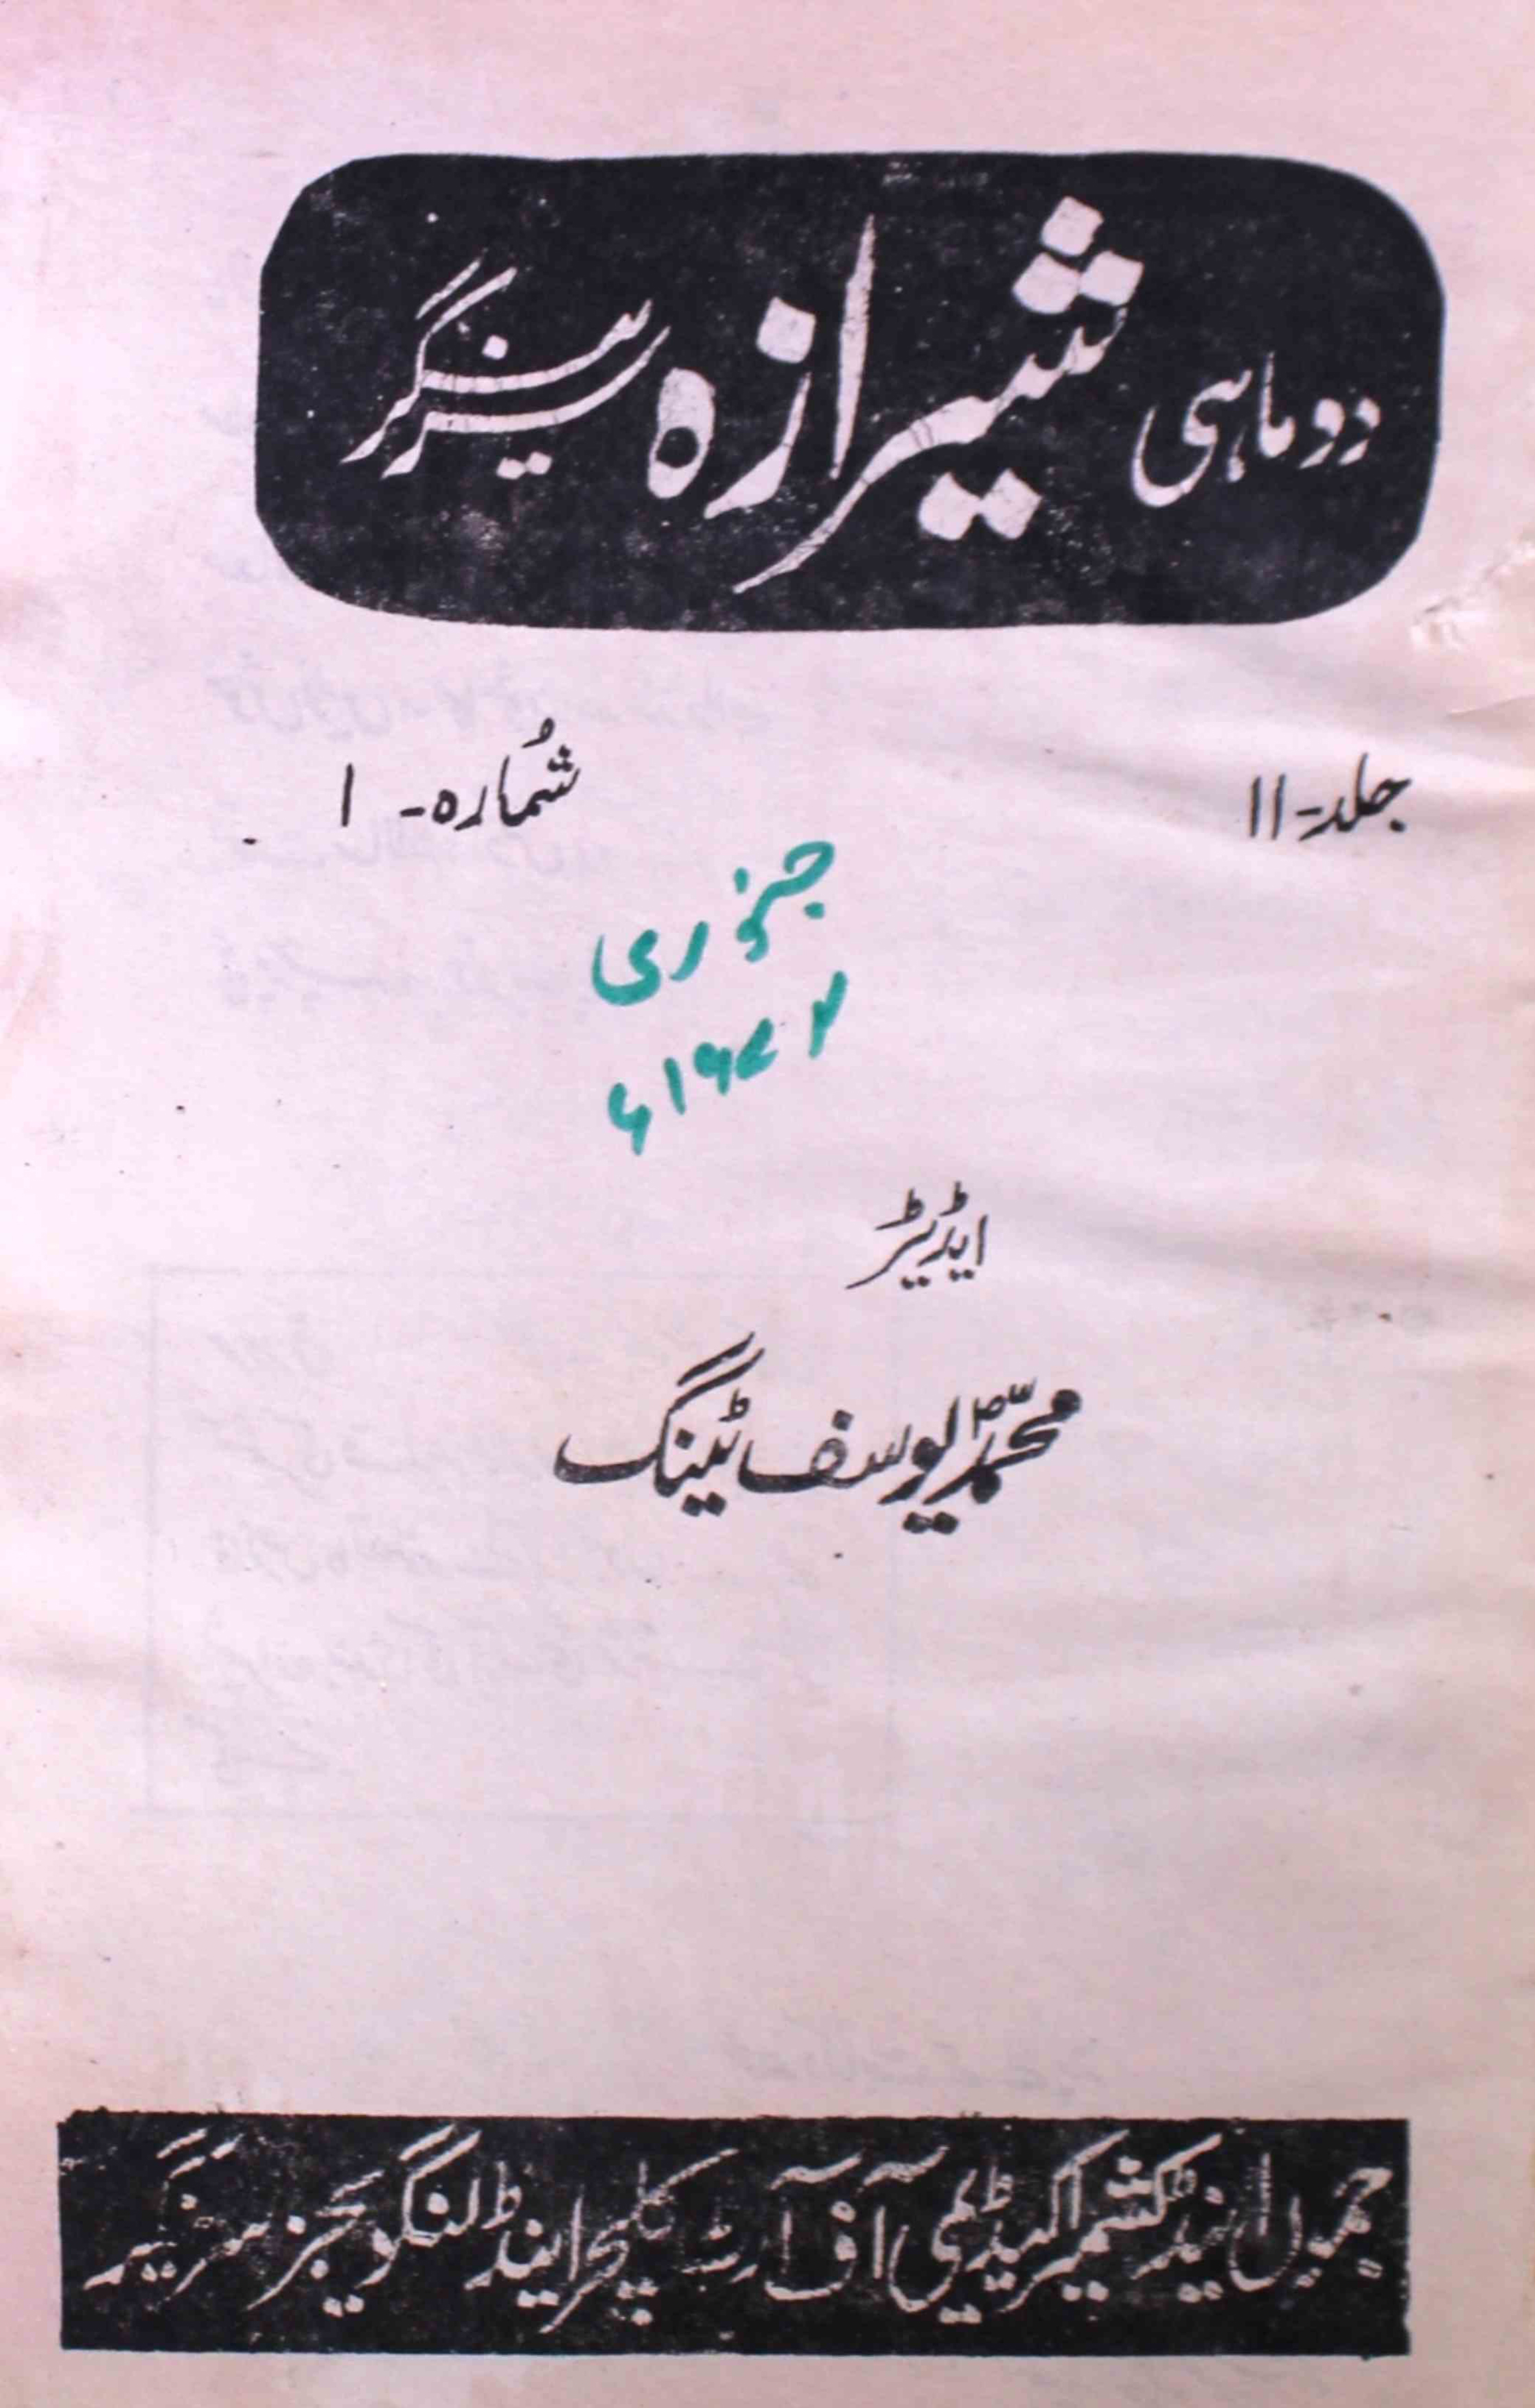 دو ماہی شیرازہ سرینگر
جلد-۱۱ شُمارہ-۱
جنوری
۱۹۷۲ء
ایڈیٹر
محمّد یوسف ٹینگ
جموں اینڈ کشمیر اکیڈیمی آف آرٹ کلچر اینڈ لنگویجز سرینگر